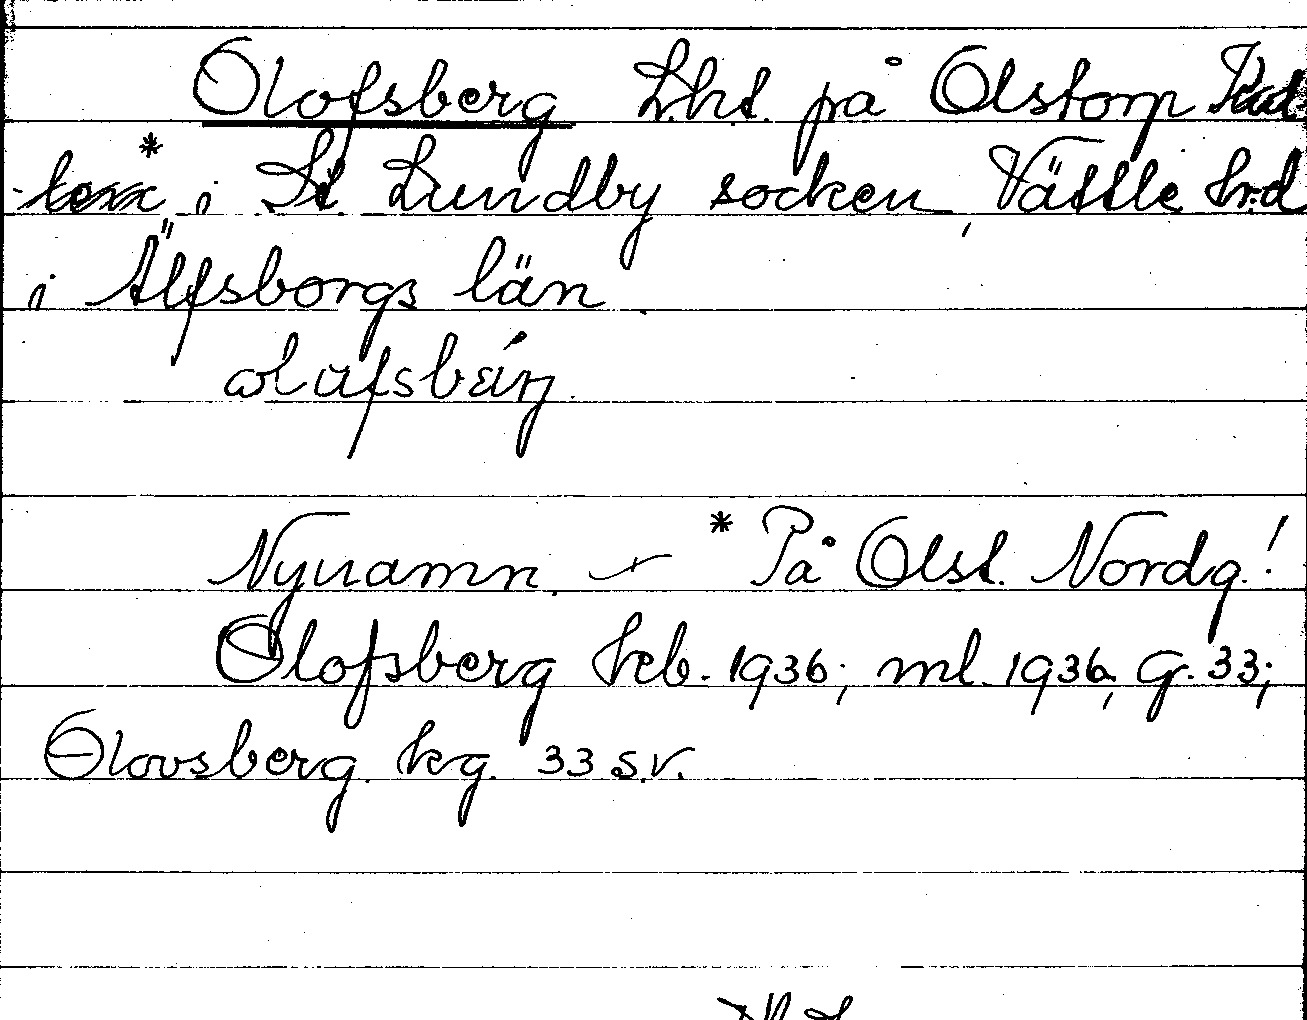 Olofsberg Lht. på Olstorp
* i St Lundby socken, Vättle hrd
i Älfsborgs län
Nynamn * På Olst. Nordg.!
Olofsberg kb. 1936; ml. 1936, G. 33;
Olovsberg kg. 33 s.v.